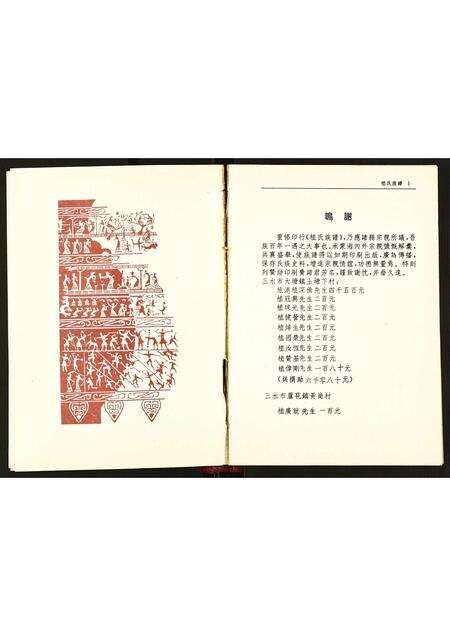 植氏族譜 1
鳴 謝
重修印行《植氏族譜》,乃應諸縣宗親所議,吾
族百年一遇之大事也,承蒙海内外宗親慷慨解囊,
共襄盛舉,使族譜得以如期印刷出版,廣為傳播,
保存氏族史料,增進宗親情誼,功德無量焉。特刻
列贊助印刷費諸君芳名,謹致謝忱,并垂久遠。
三水市大塘鎮上塘下村:
旅港植深後先生四千五百元
植冠興先生二百元
植球光先生二百元
植健餐先生二百元
植焯生先生二百元
植國榮先生二百元
植汝恒先生二百元
植贊基先生二百元
植偉剛先生一百八十元
(共捐助六千零八十元)
三水市蘆苞鎮黃崗村
植廣就先生一百元